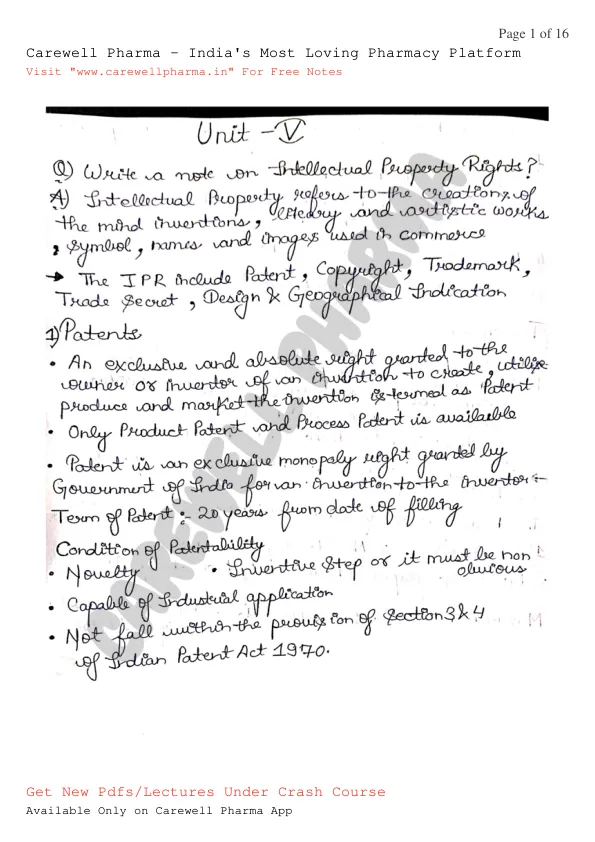 Page 1 of 16
Carewell Pharma - India's Most Loving Pharmacy Platform
Visit "www.carewellpharma.in" For Free Notes
Unit - V
Q) Write a note on Intellectual Property Rights?
A) Intellectual Property refers to the creations of
the mind inventions, litedry and artistic works
, symbol, names and images used in commerce
→ The IPR include Patent, Copyright, Trademark,
Trade Secret, Design & Geographical Indication
1) Patents
• An exclusive and absolute right granted to the
owner or inventor of an invention to create, utilize
produce and market the invention is termed as Patent
• Only Product Patent and Process Patent is available
• Patent is an exclusive monopoly right granted by
Government of India for an invention to the inventor :-
Term of Patent :- 20 years from date of filling
Condition of Patentability
• Novelty • Inventive Step or it must be non
obvious
• Capable of Industrial application
• Not fall within the provision of Section 3 & 4
of Indian Patent Act 1970.
CAREWELL PHARMA
Get New Pdfs/Lectures Under Crash Course
Available Only on Carewell Pharma App